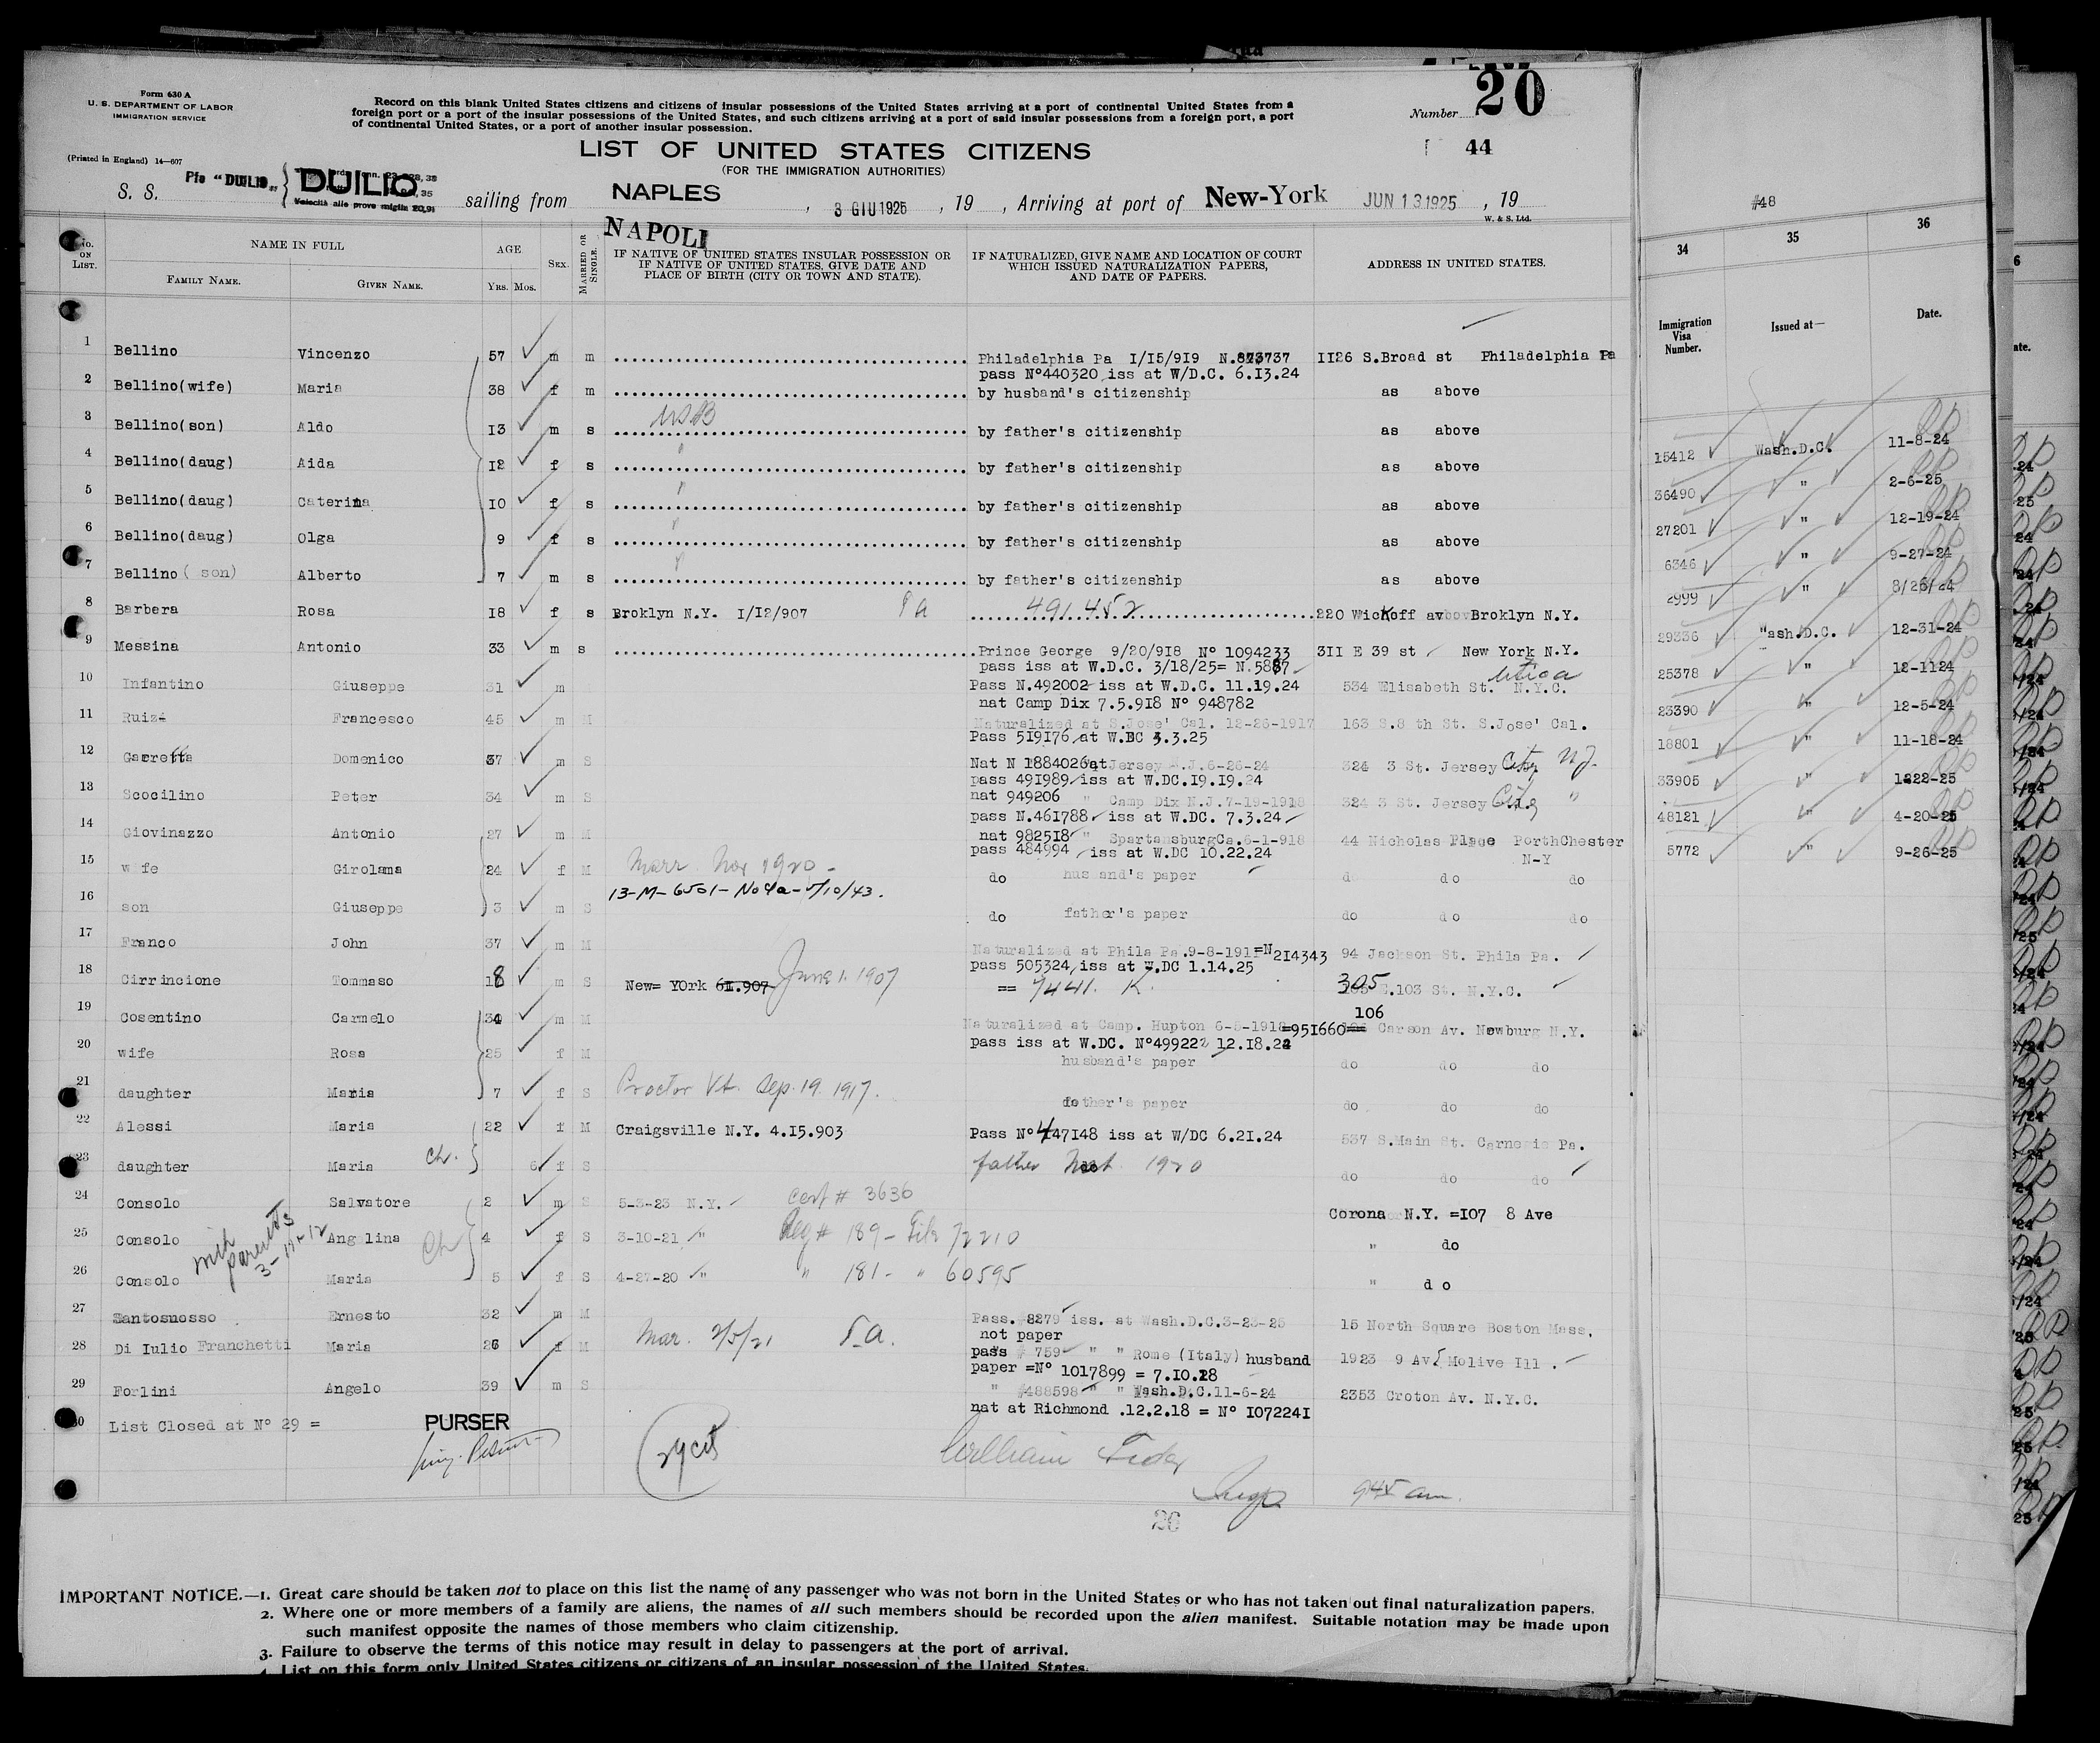 Form 630 A
U. S. DEPARTMENT OF LABOR
IMMIGRATION SERVICE
(Printed in England) 14—607
Record on this blank United States citizens and citizens of insular possessions of the United States arriving at a port of continental United States from a
foreign port or a port of the insular possessions of the United States, and such citizens arriving at a port of said insular possessions from a foreign port, a port
of continental United States, or a port of another insular possession.
Number 20
44
LIST OF UNITED STATES CITIZENS
(FOR THE IMMIGRATION AUTHORITIES)
S. S. Pfo "DUILIO" DUILIO sailing from NAPLES, 3 GIU 1925, 19 , Arriving at port of New-York JUN 13 1925, 19
Velocità alle prove miglia
W. & S. Ltd.
NAPOLI
No. ON LIST. NAME IN FULL FAMILY NAME. GIVEN NAME. AGE YRS. MOS. SEX. MARRIED OR SINGLE. IF NATIVE OF UNITED STATES INSULAR POSSESSION OR IF NATIVE OF UNITED STATES, GIVE DATE AND PLACE OF BIRTH (CITY OR TOWN AND STATE). IF NATURALIZED, GIVE NAME AND LOCATION OF COURT WHICH ISSUED NATURALIZATION PAPERS, AND DATE OF PAPERS. ADDRESS IN UNITED STATES.
1 Bellino Vincenzo 57 m m Philadelphia Pa 1/15/919 N. 1126 S.Broad st Philadelphia Pa
pass N°440320 iss at W/D.C. 6.13.24
2 Bellino(wife) Maria 38 f m by husband's citizenship as above
3 Bellino(son) Aldo 13 m s USB by father's citizenship as above
4 Bellino(daug) Aida 12 f s " by father's citizenship as above
5 Bellino(daug) Caterina 10 f s " by father's citizenship as above
6 Bellino(daug) Olga 9 f s " by father's citizenship as above
7 Bellino( son) Alberto 7 m s " by father's citizenship as above
8 Barbera Rosa 18 f s Broklyn N.Y. 1/12/907 491.452 220 Wickoff av Broklyn N.Y.
9 Messina Antonio 33 m s Prince George 9/20/918 N° 1094233 311 E 39 st New York N.Y.
pass iss at W.D.C. 3/18/25= N.
10 Infantino Giuseppe 31 m Pass N.492002 iss at W.D.C. 11.19.24 534 Elisabeth St. Utica N.Y.C.
nat Camp Dix 7.5.918 N° 948782
11 Ruiz Francesco 45 m M Naturalized at S.Jose' Cal. 12-26-1917 163 S.8 th St. S.Jose' Cal.
Pass 519176 at W.DC 3.3.25
12 Garretta Domenico 37 m S Nat N at Jersey N.J.6-26-24 324 3 St. Jersey City N.J.
pass 491989 iss at W.DC.19.19.24
13 Scocilino Peter 34 m S nat 949206 " Camp Dix N.J.7-19-1918 324 3 St. Jersey City "
pass N.461788 iss at W.DC. 7.3.24
14 Giovinazzo Antonio 27 m M nat 982518 " SpartansburgCa.6-1-918 44 Nicholas Place PorthChester N-Y
pass 484994 iss at W.DC 10.22.24
15 wife Girolama 24 f M Marr. Nov 1920 do husband's paper do do do
13-M-6501-No4a-5/10/43.
16 son Giuseppe 3 m S do father's paper do do do
17 Franco John 37 m M Naturalized at Phila Pa.9-8-191 =N 214343 94 Jackson St. Phila Pa.
pass 505324 iss at W.DC 1.14.25
18 Cirrincione Tommaso 18 m S New= YOrk 61.907 June 1. 1907 == 7441. K. 305 E.103 St. N.Y.C.
19 Cosentino Carmelo 34 m M Naturalized at Camp. Hupton 6-5-1918=951660 106 Carson Av. Newburg N.Y.
pass iss at W.DC. N°499222 12.18.24
20 wife Rosa 25 f M husband's paper do do do
21 daughter Maria 7 f S Proctor Vt. Sep. 19. 1917. father's paper do do do
22 Alessi Maria 22 f M Craigsville N.Y. 4.15.903 Pass N° 447148 iss at W/DC 6.21.24 537 S.Main St. Carnegie Pa.
23 daughter Maria Ch. 6 f S father Nat. 1920 do do do
24 Consolo Salvatore 2 m S 5-3-23 N.Y. Cert # 3636 Corona N.Y. =107 8 Ave
25 Consolo Angelina Ch 4 f S 3-10-21 " Reg # 189 - File 72210 " do
with parents 3-17-12
26 Consolo Maria 5 f S 4-27-20 " " 181 - " 60595 " do
27 Santosuosso Ernesto 32 m M Pass. #8279 iss. at Wash.D.C.3-23-25 15 North Square Boston Mass.
not paper
28 Di Iulio Franchetti Maria 26 f M Mar. 2/5/21 pass # 759 " " Rome (Italy) husband 1923 9 Av Molive Ill.
paper =N° 1017899 = 7.10.18
29 Forlini Angelo 39 m S " #488598 " " Wash.D.C.11-6-24 2353 Croton Av. N.Y.C.
nat at Richmond .12.2.18 = N° 1072241
30 List Closed at N° 29 = PURSER
29 cit
William
945 am.
26
IMPORTANT NOTICE.—1. Great care should be taken not to place on this list the name of any passenger who was not born in the United States or who has not taken out final naturalization papers.
2. Where one or more members of a family are aliens, the names of all such members should be recorded upon the alien manifest. Suitable notation may be made upon
such manifest opposite the names of those members who claim citizenship.
3. Failure to observe the terms of this notice may result in delay to passengers at the port of arrival.
4. List on this form only United States citizens or citizens of an insular possession of the United States.
#48
34 35 36
Immigration Visa Number. Issued at— Date.
15412 Wash.D.C. 11-8-24
36490 " 2-6-25
27201 " 12-19-24
6346 " 9-27-24
2999 " 8/26/24
29336 Wash.D.C. 12-31-24
25378 " 12-1124
23390 " 12-5-24
18801 " 11-18-24
33905 " 1222-25
48121 " 4-20-25
5772 " 9-26-25